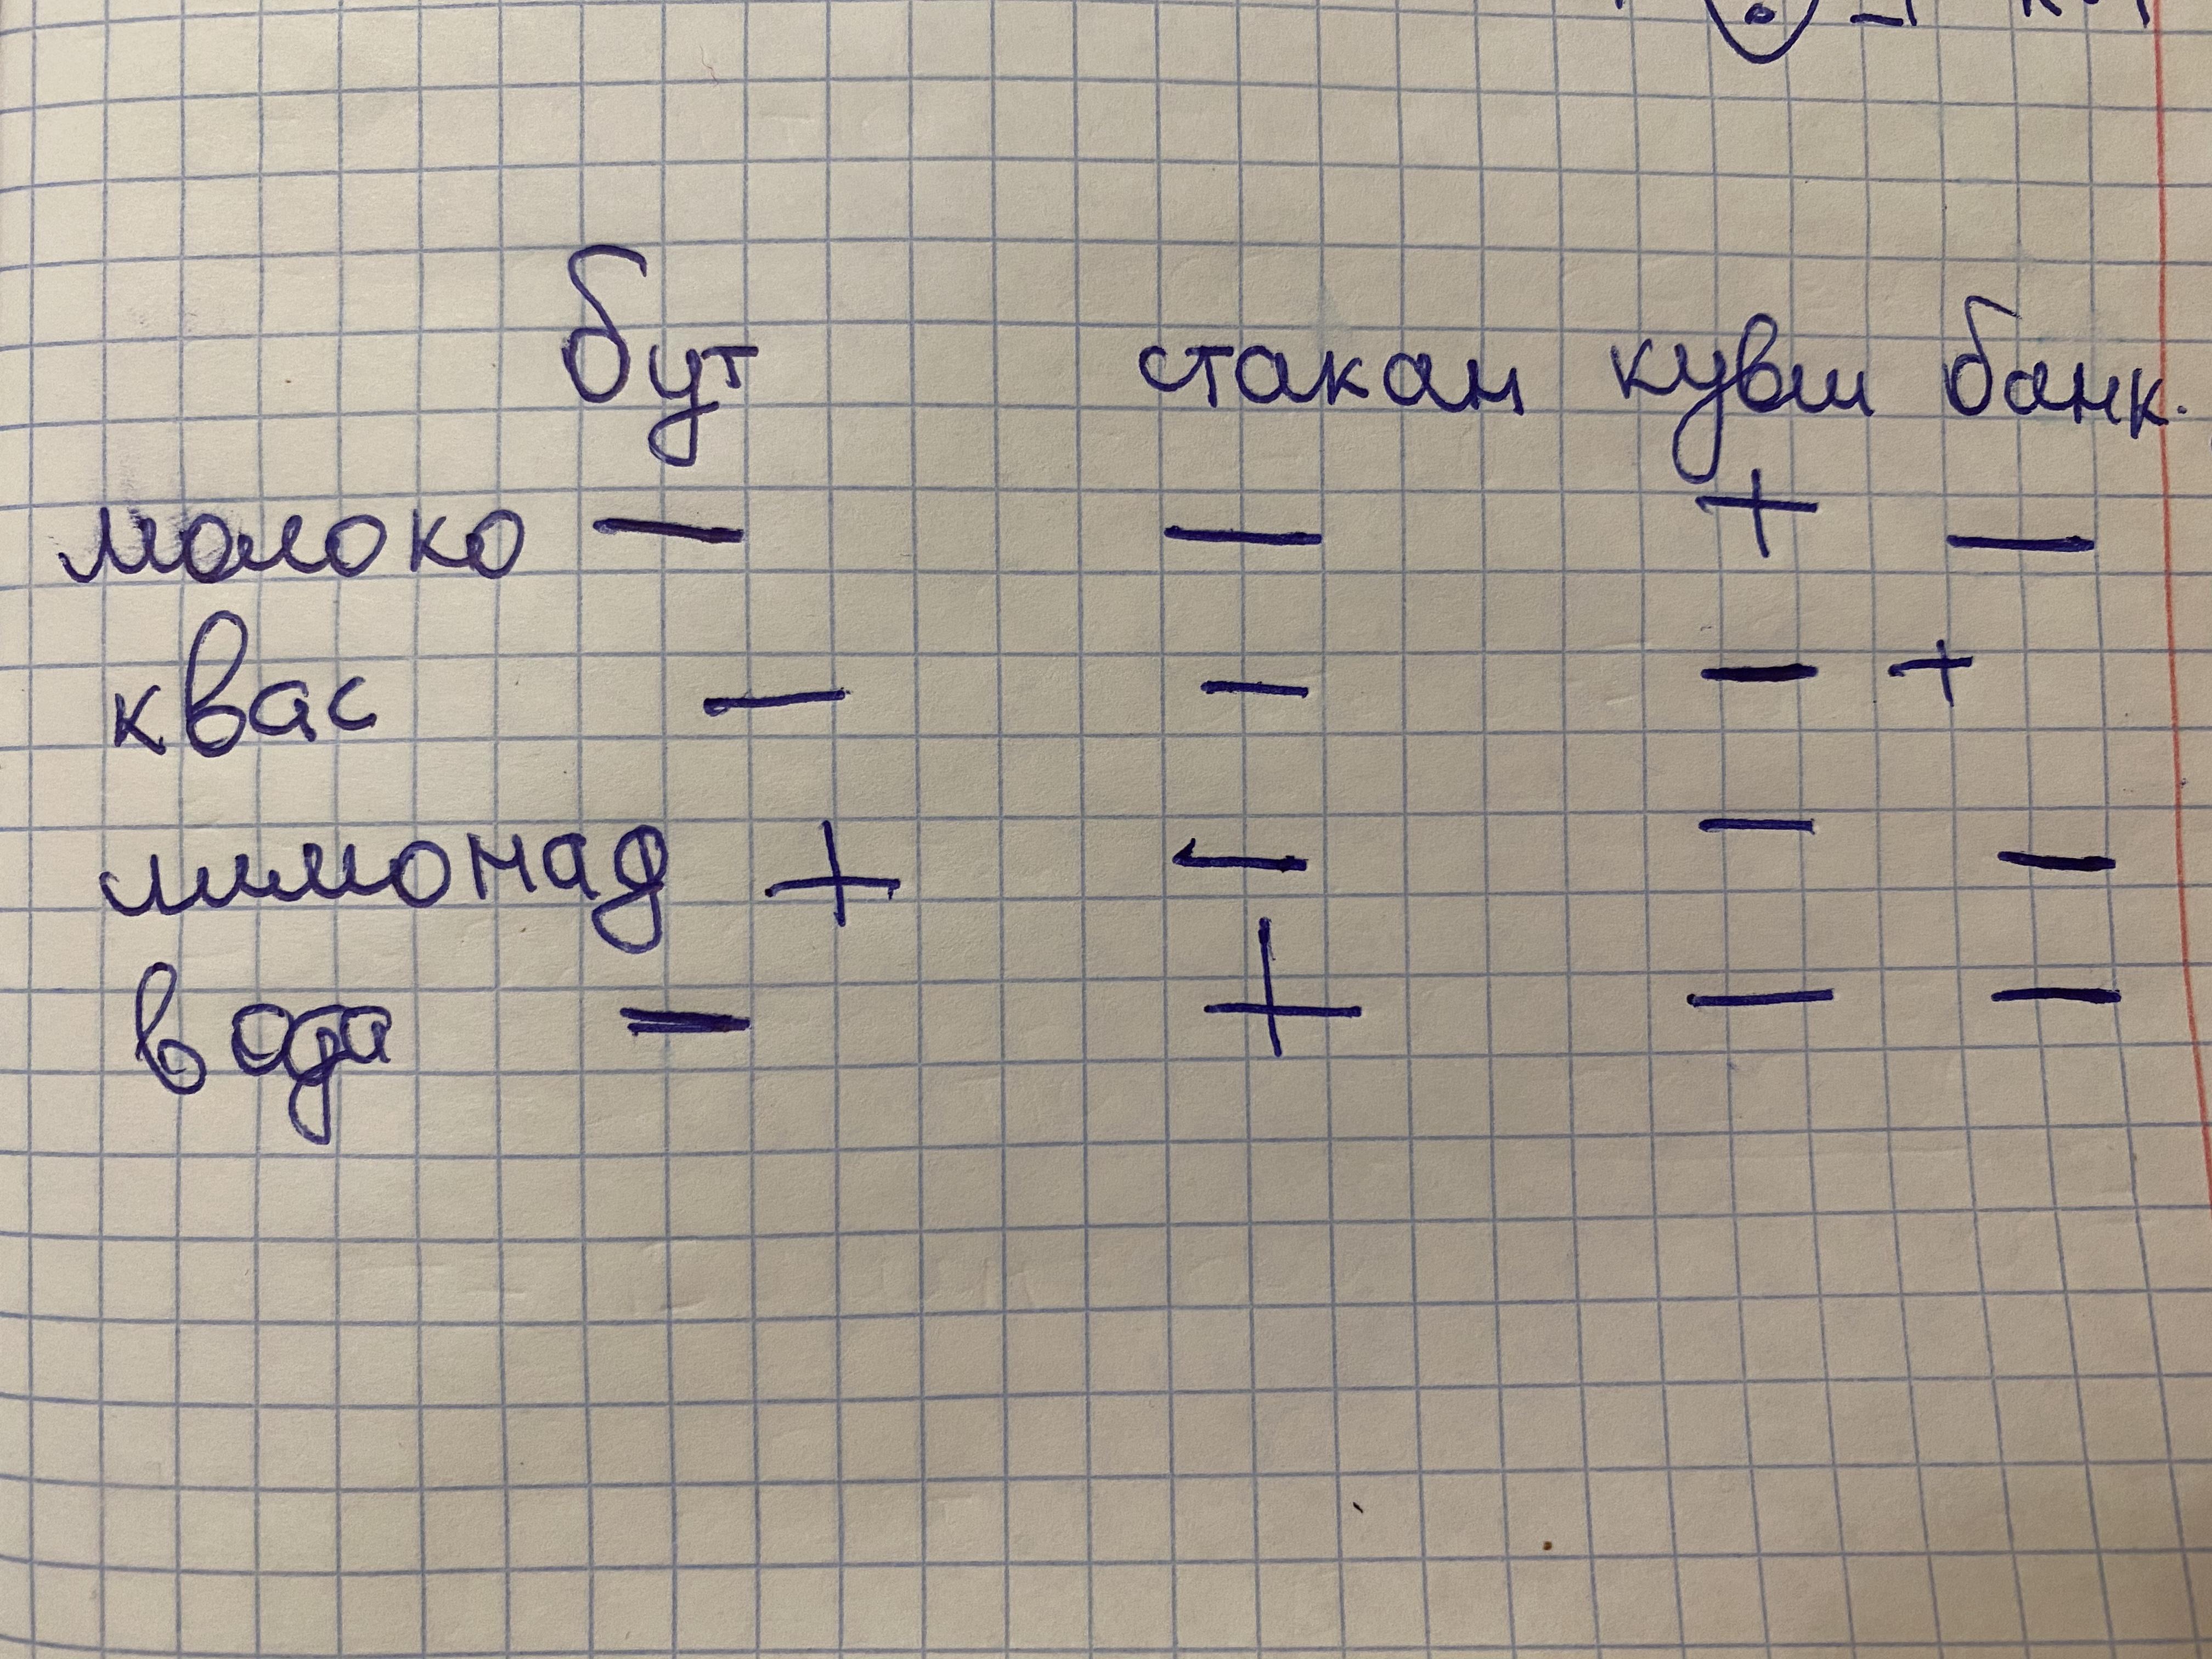 бут стакан кувш банк.
молоко — — + —
квас — — — +
лимонад + — — —
вода — + — —